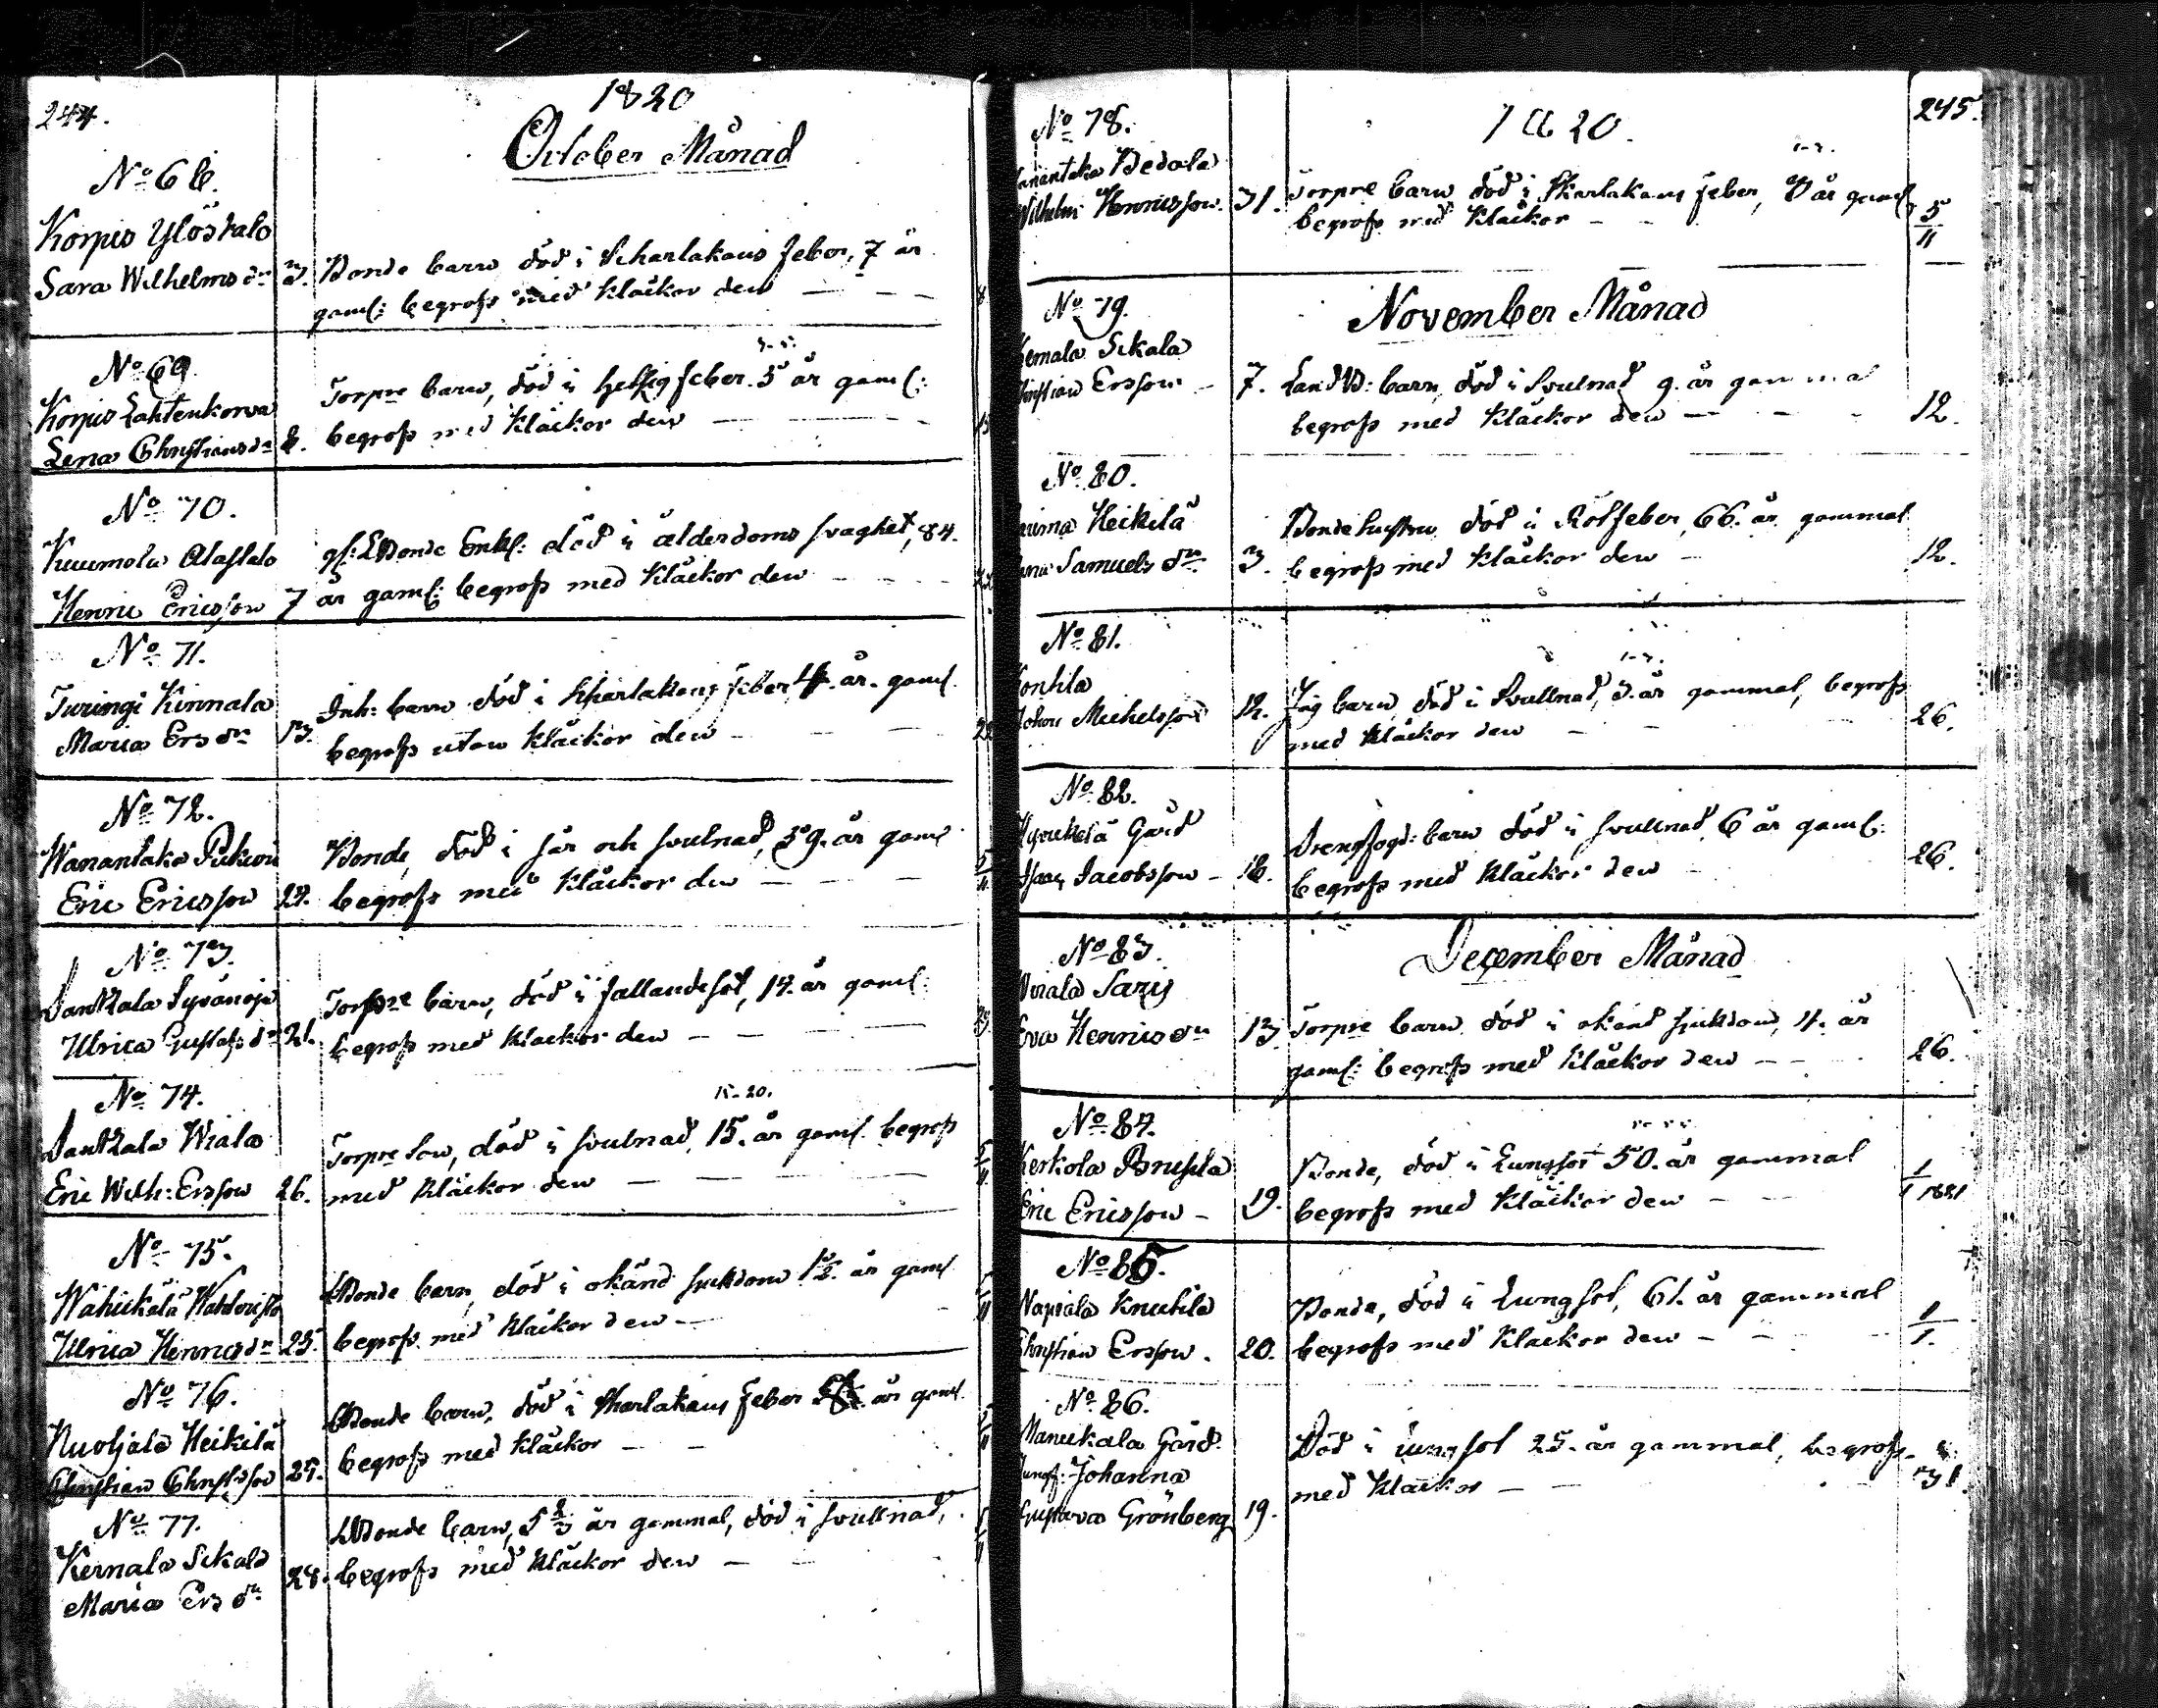 244.
1820
October Månad
No 68.
Korpis Ylöstalo
Sara Wilhelms dr 3. Bonde barn död i Scharlakans feber, 7 år
gaml: begrofs med Kläckor den
No 69.
Korpis Lahtenkorva
Torpre barn, död i hetsig feber. 5 år gaml:
Lena Christians dr 8. begrofs med Kläckor den
No 70.
Kuumola Alastalo
gl: Bonde Enkl: död i ålderdoms svaghet, 84.
Henric Ericsson 7 år gaml: begrofs med Kläckor den
No 71.
Turingi Kinnala
Inh: barn död i Skarlakans feber 4. år gaml.
Maria Ers dr 13. begrofs utan Kläckor den
No 72.
Wanantaka
Bonde, död i sår och svulnad, 59. år gaml
Eric Ericsson 24. begrofs med Kläckor den
No 73.
Jantzala Syvänoja
Torpre barn, död i fallandesot, 14. år gaml:
Ulrica Gustafs dr 21. begrofs med Klackor den
No 74.
15-20.
Jantzala Wiala
Torpre Son, död i svulnad, 15. år gaml. begrofs
Eric Wilh: Ersson 26. med Kläckor den
No 75.
Bonde barn, död i okänd sjukdom 1 1/2. år gaml
Ulrica Henrics dr 25. begrofs med Kläckor den
No 76.
Nuoljala Heikilä
Bonde barn, död i Skarlakans feber år gaml.
Christian Christsson 25. begrofs med Kläckor
No 77.
Kernala Sikala
Bonde barn, 5 år gammal, död i svullnad,
Maria Ers dr 28. begrofs med Kläckor den
245.
1820.
No 78.
Wilhelm Henricsson. 31. Torpre barn död i Skarlakans feber, år gaml
begrofs med Kläckor 5/11
November Månad
No 79.
Sikala
Christian Ersson 7. barn, död i svulnad 9. år gammal
begrofs med Kläckor den 12.
No 80.
Heikilä
Bondehustru död i Rötfeber, 66. år gammal
Samuels dr 3. begrofs med Kläckor den 12.
No 81.
Johan Michelsson 12. barn, död i Svullnad, 3. år gammal, begrofs
med Kläckor den 26.
No 82.
Gård
barn död i svullnad 6 år gaml:
Isaac Jacobsson 18. begrofs med Kläckor den 26.
December Månad
No 83.
Wiala Sarij
Eva Henrics dr 13 Torpre barn död i okänd sjukdom, 4. år
gaml: begrofs med Kläckor den 26.
No 84.
Kerkola
Bonde, död i Lungsot 50. år gammal
Eric Ericsson 19. begrofs med Kläckor den 1/1 1821
No 85.
Napiala Knutila
Bonde, död i Lungsot, 61. år gammal
Christian Ersson. 20. begrofs med Klackor den 1/1.
No 86.
Gård.
Jungf: Johanna
Död i lungsot 25. år gammal, begrofs
Gustava Grönberg 19. med Kläckor 31.